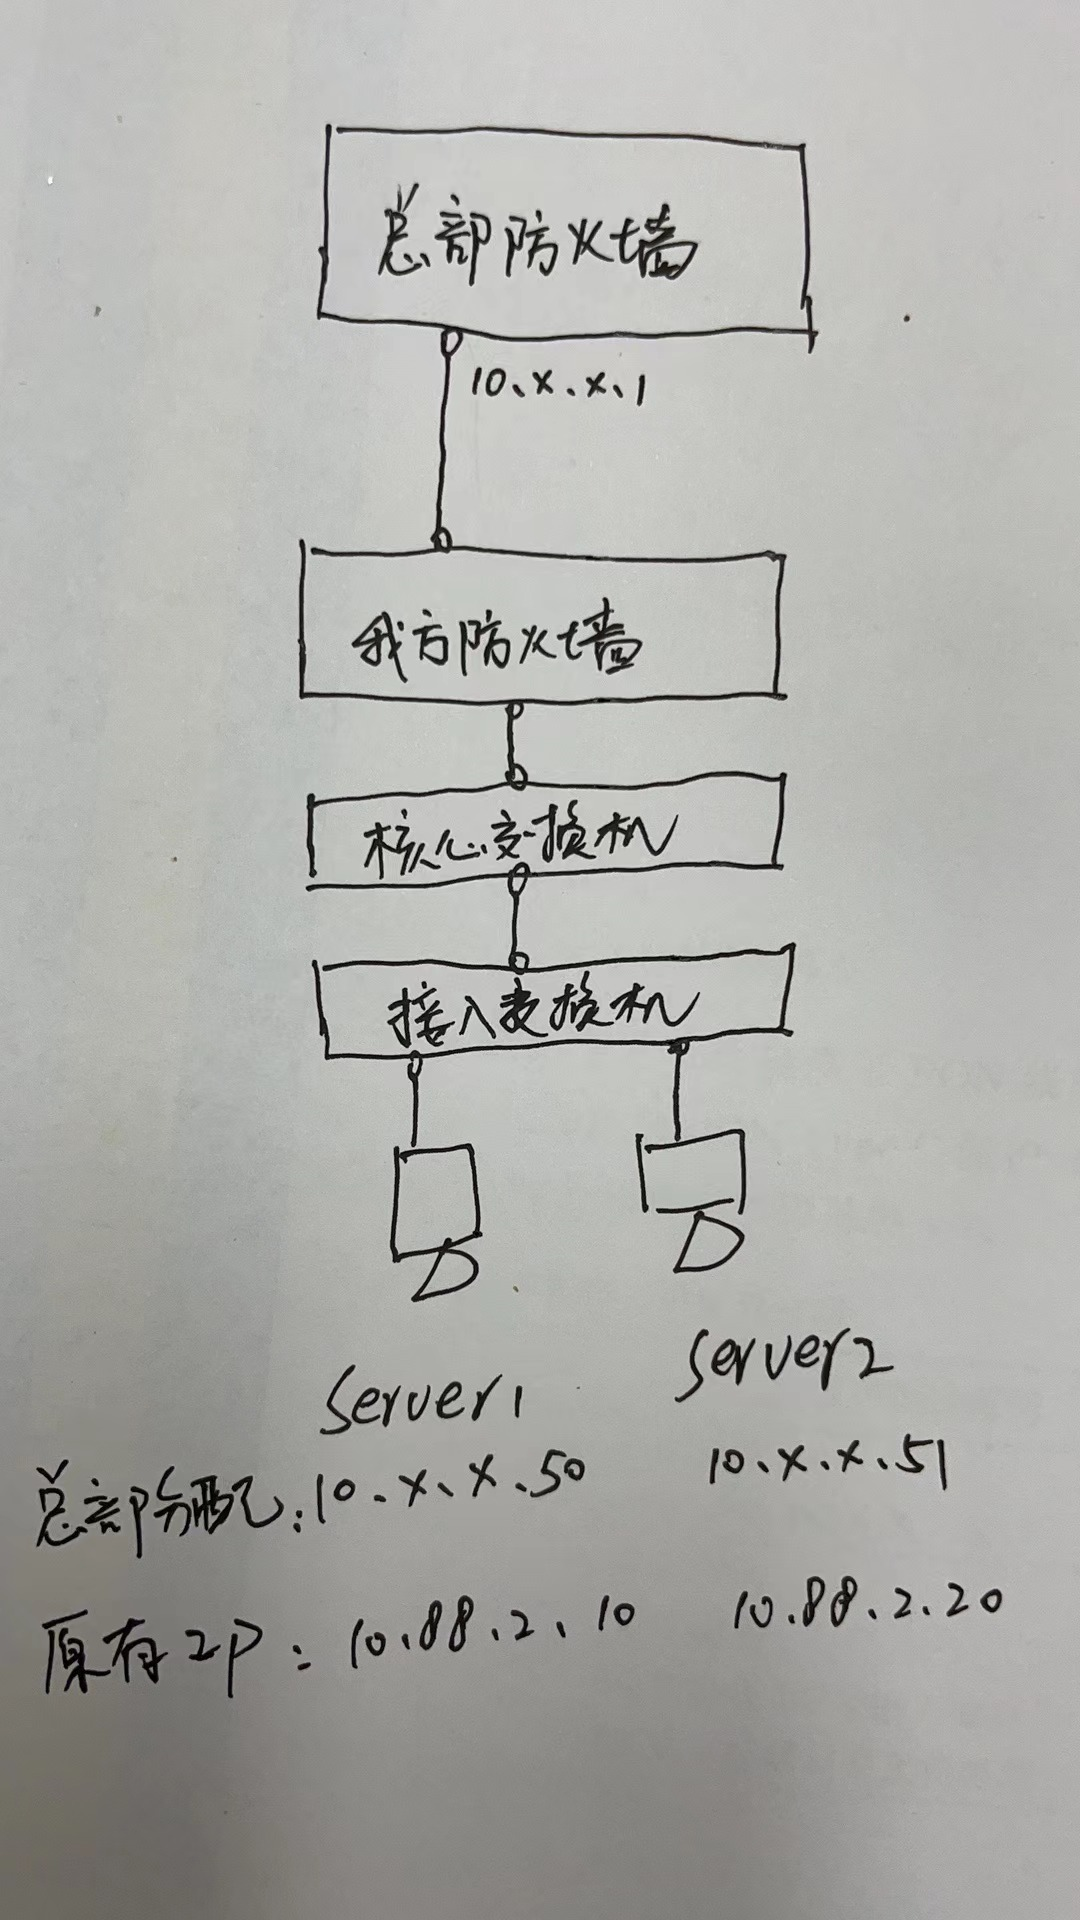 总部防火墙
10.x.x.1
我方防火墙
核心交换机
接入交换机
server1
server2
总部分配:10.x.x.50 10.x.x.51
原有IP:10.88.2.10 10.88.2.20